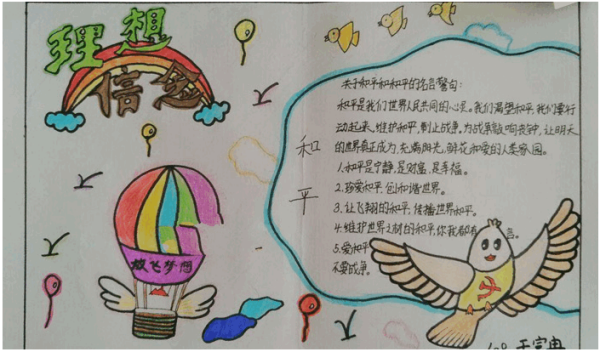 理想
信念
和平
放飞梦想
关于和平和和平的名言警句:
和平是我们世界人民共同的心灵。我们渴望和平,我们要行
动起来,维护和平,制止战争,为战争敲响丧钟,让明天
的世界真正成为充满阳光、鲜花和爱的人类家园。
1.和平是宁静,是财富,是幸福。
2.珍爱和平,创和谐世界。
3.让飞翔的和平,传播世界和平。
4.维护世界之材的和平,你我都有
5.爱和平
不要战争。